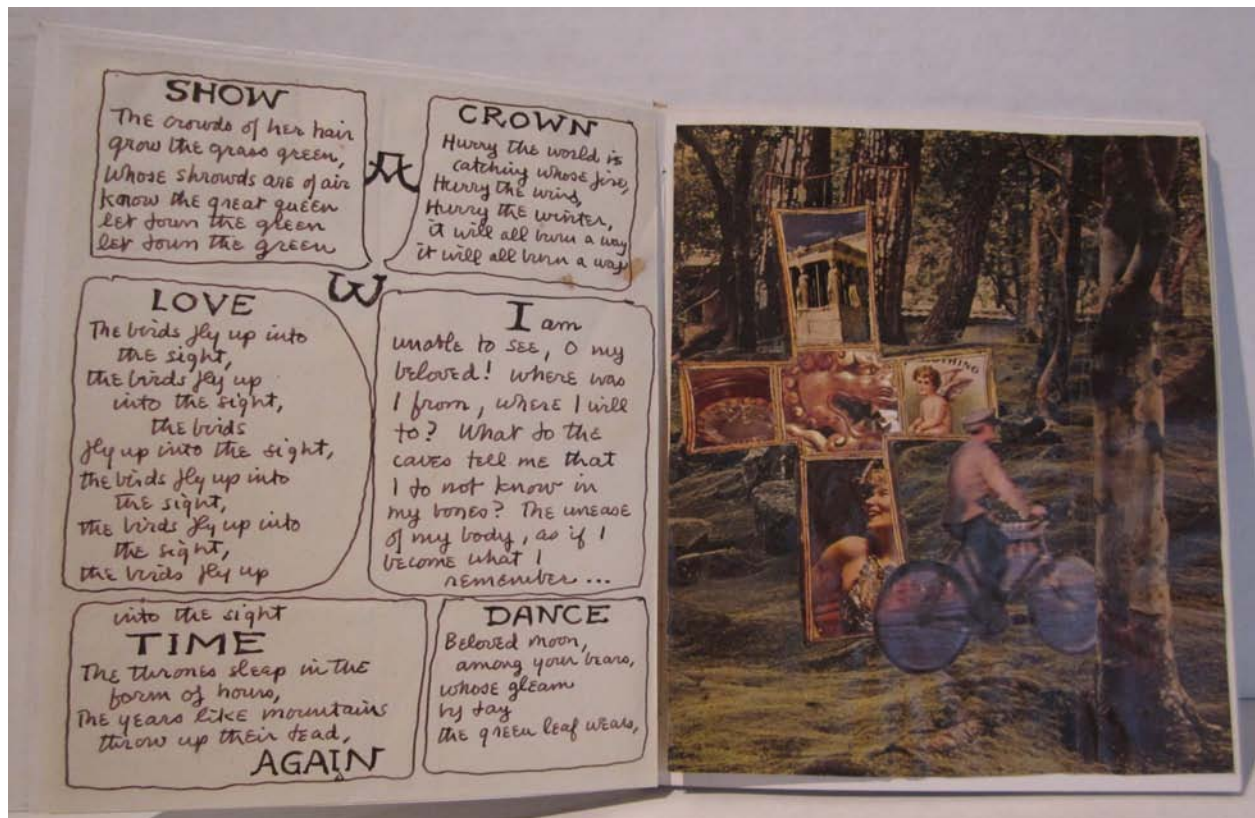 SHOW
The crowds of her hair
grow the grass green,
Whose shrowds are of air
know the great queen
let down the green
let down the green
A
CROWN
Hurry the world is
catching whose fire,
Hurry the wind,
Hurry the winter,
it will all burn a way
it will all burn a way
W
LOVE
The birds fly up into
the sight,
the birds fly up
into the sight,
the birds
fly up into the sight,
the birds fly up into
the sight,
the birds fly up into
the sight,
the birds fly up
I am
unable to see, O my
beloved! Where was
I from, where I will
to? What do the
caves tell me that
I do not know in
my bones? The unease
of my body, as if I
become what I
remember...
into the sight
TIME
The thrones sleap in the
form of hours,
The years like mountains
throw up their dead,
AGAIN
DANCE
Beloved moon,
among your bears,
whose gleam
by day
the green leaf wears,
THING